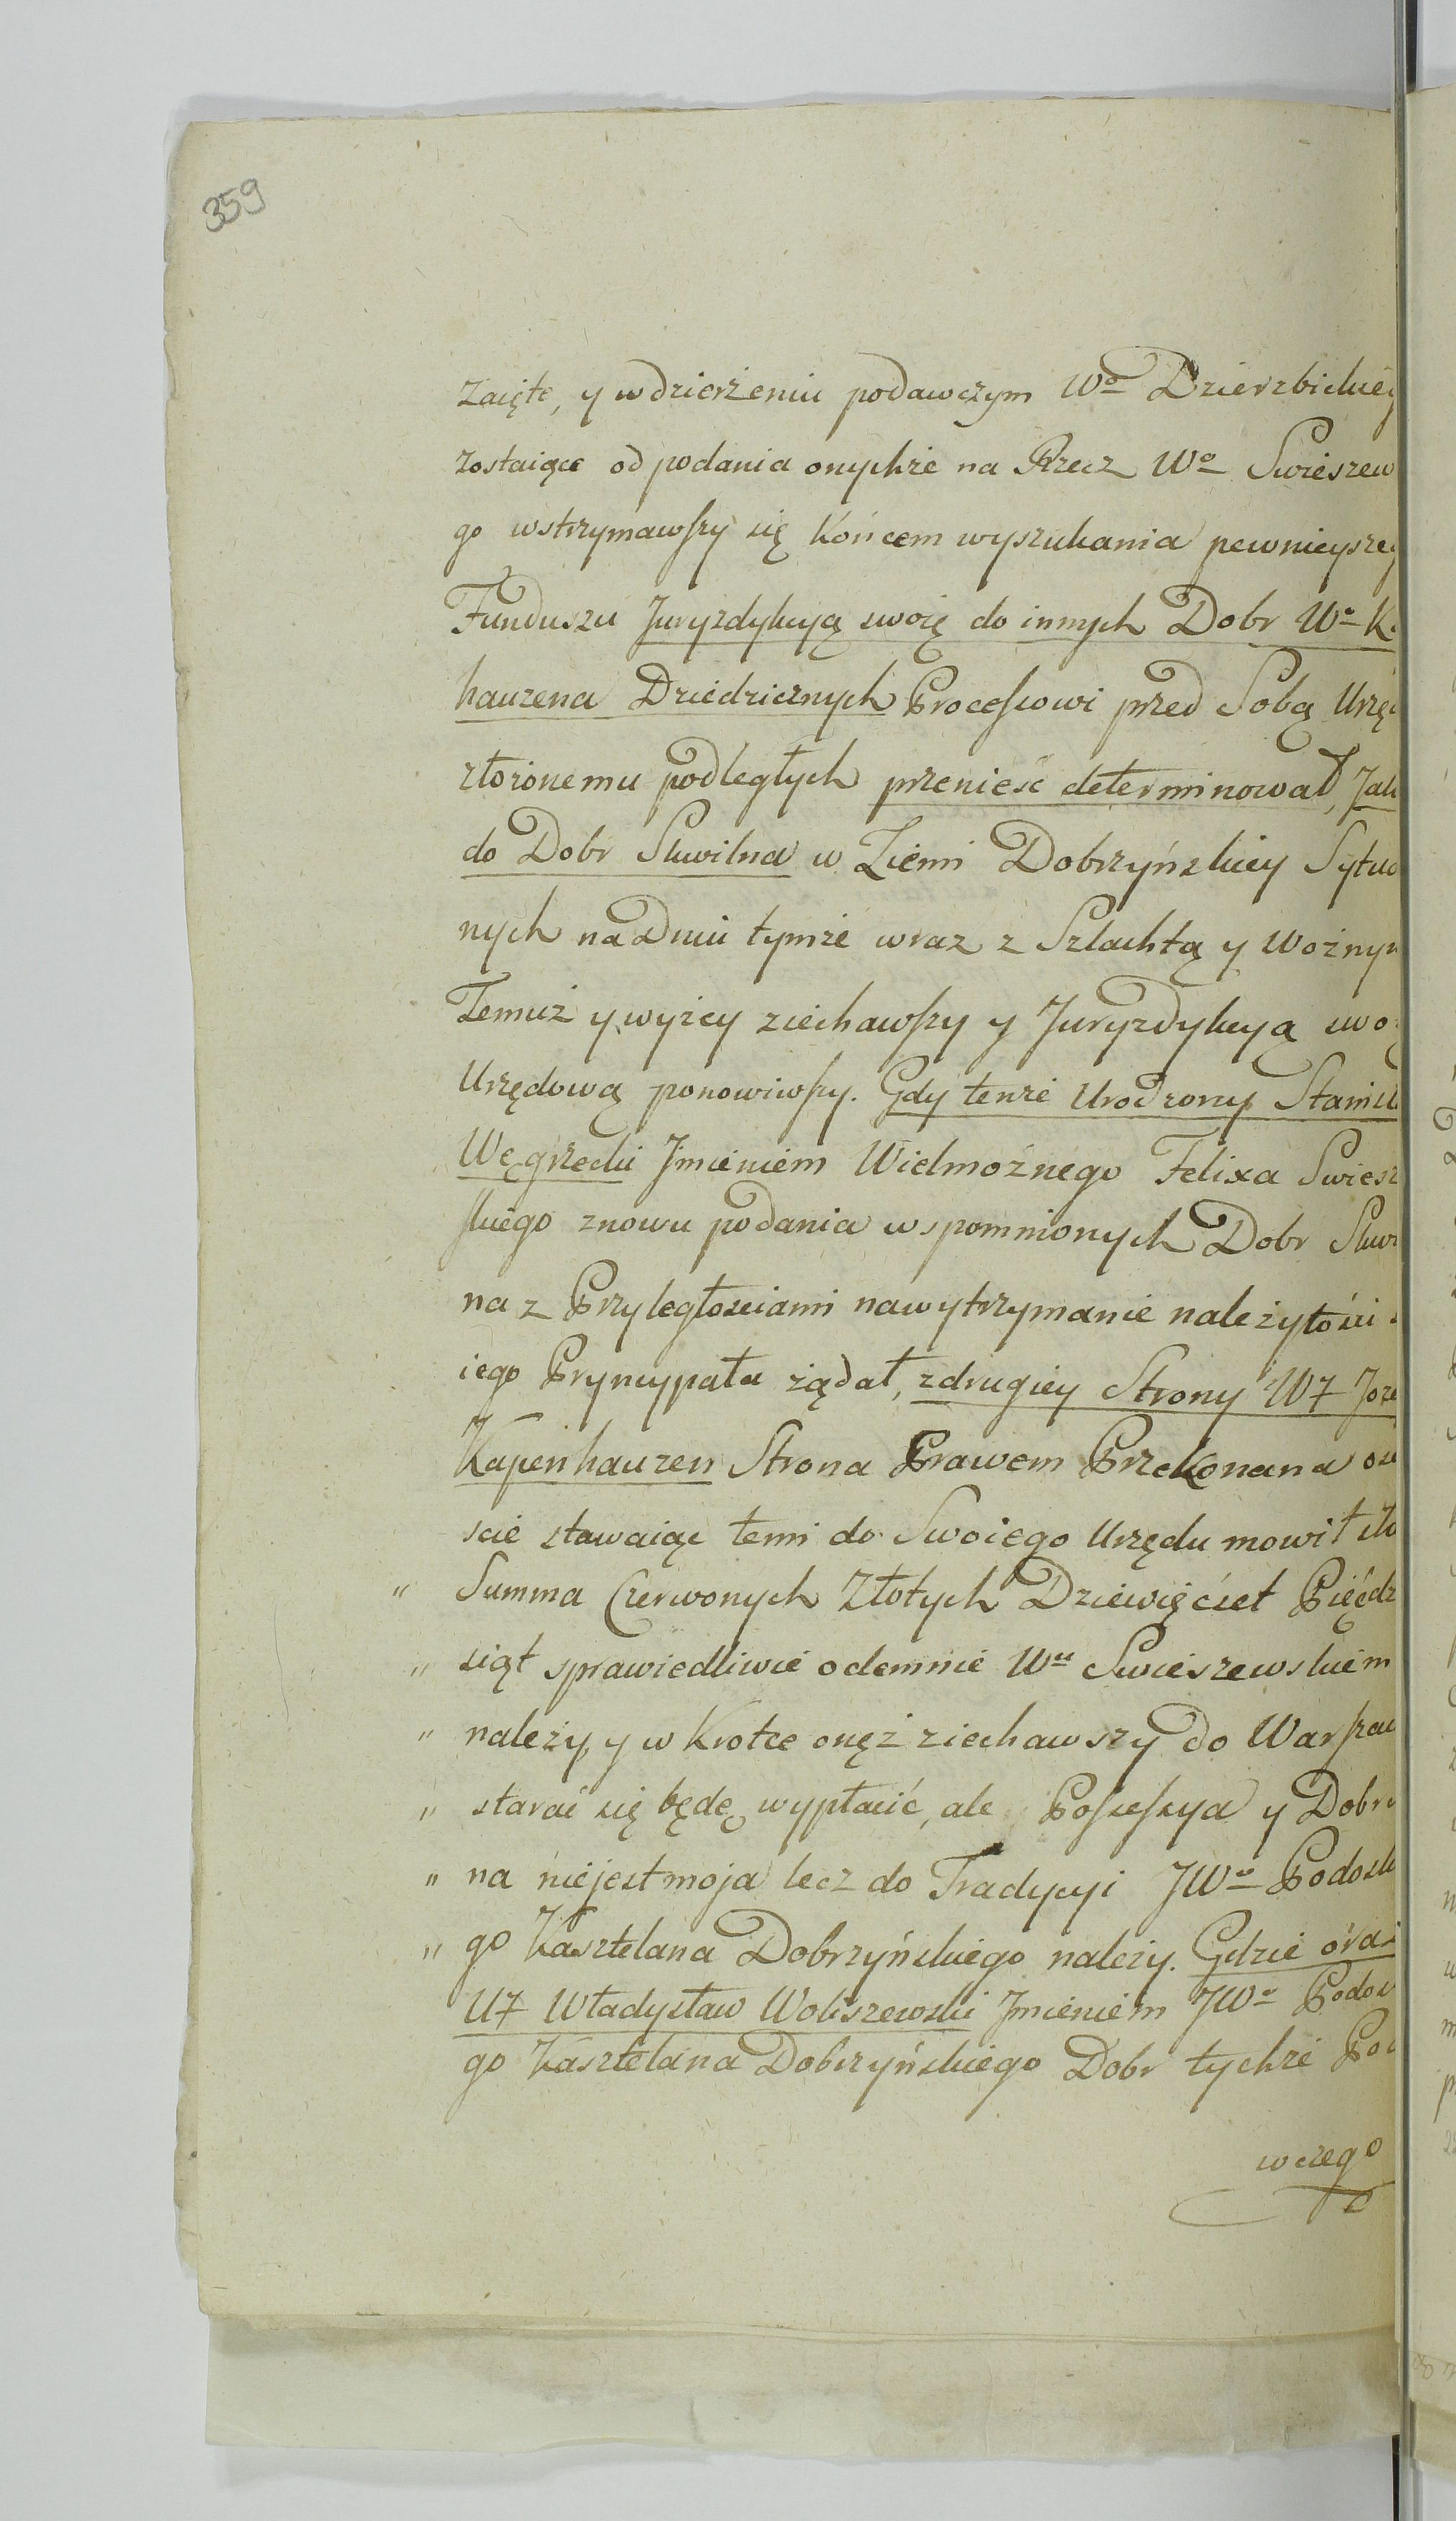 359
zaięte, y w dzierżeniu podawczym Wo Dzierzbickiey
zostaiące od podania onychże na Rzecz Wo Swieszew
go wstrzymawszy się końcem wyszukania pewnieysze
Funduszu Juryzdykcyą swoię do innych Dobr Wo K
hauzena Dziedzicznych Processowi przed Sobą Urzę
złożonemu podległych przenieść determinował, Jak
do Dobr Skwilna w Ziemi Dobrzyńskiey Sytuo
nych na Dniu tymże wraz z Szlachtą y Woźnym
Temuż y wyżey ziechawszy y Juryzdykcyą swo
Urzędową ponowiwszy. Gdy tenże Urodzony Stanis
Węgrzecki Jmieniem Wielmożnego Felixa Swiesz
skiego znowu podania wspomnionych Dobr Skwi
na z Przyległościami na wytrzymanie należytości
iego Pryncypała żądał, z drugiey Strony WJ Joze
Kapenhauzen Strona Prawem Przekonana oso
ście stawaiąc temi do Swoiego Urzędu mowił sło
„ Summa Czerwonych Złotych Dziewięćset Pięćdz
„ siąt sprawiedliwie odemnie Wu Swieszewskiem
„ należy, y w krotce onęż ziechawszy do Warszaw
„ starać się będę wypłacić, ale Possessya y Dobr
„ na niejest moja lecz do Tradycyi JWo Podosk
„ go Kasztelana Dobrzyńskiego należy. Gdzie oraz
UJ Władysław Woliszewski Jmieniem JWo Podos
go Kasztelana Dobrzyńskiego Dobr tychże
w czego